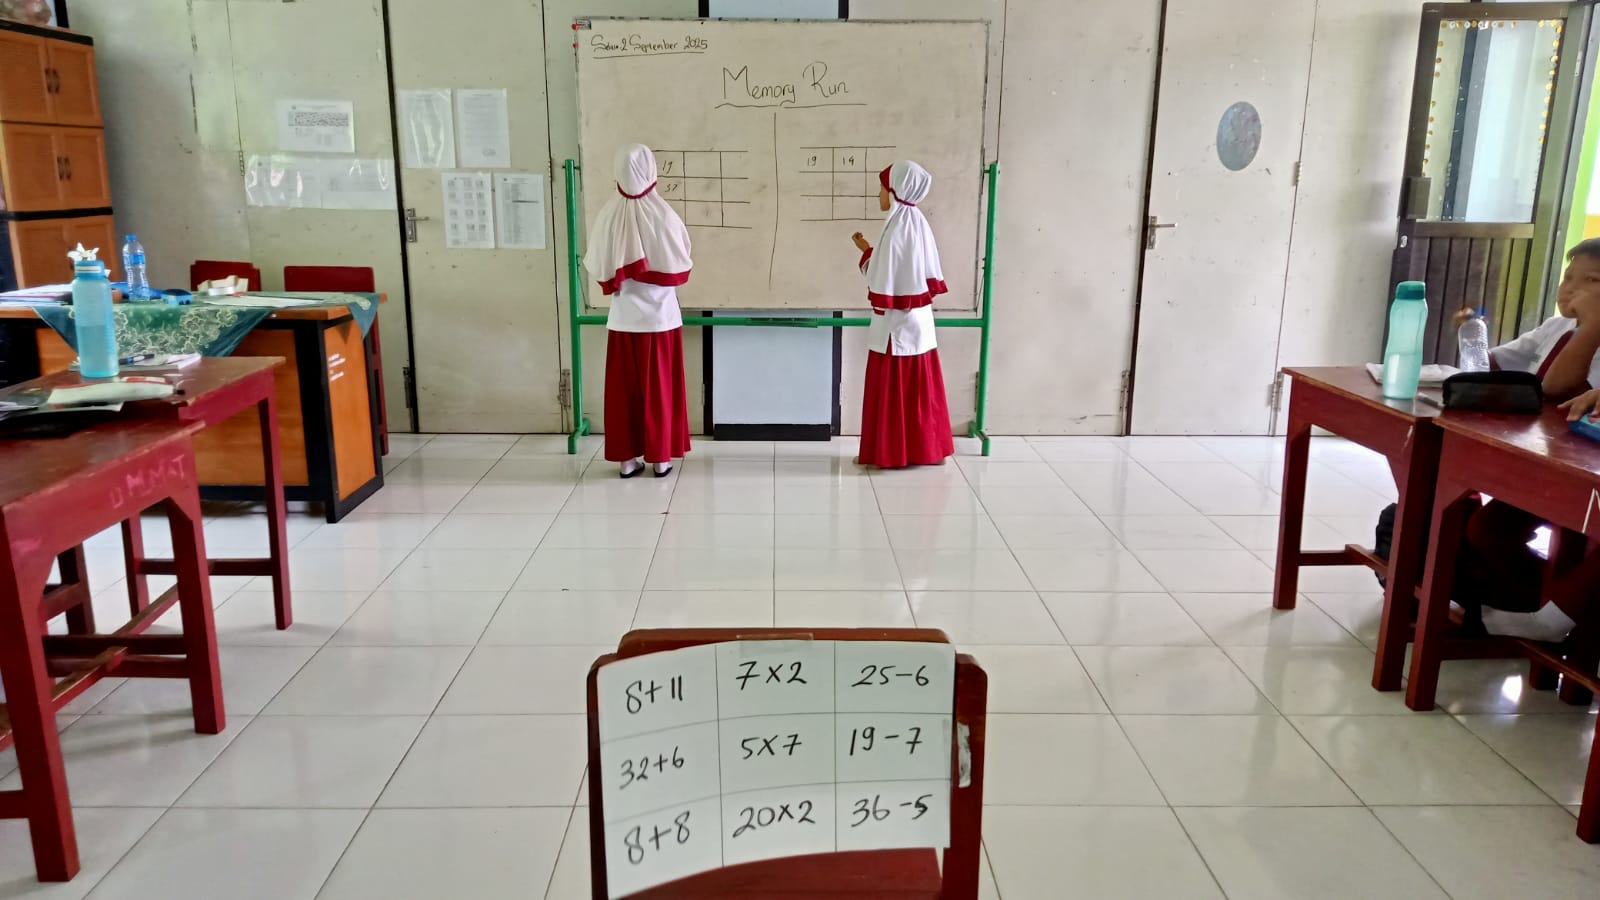 Selasa 2 September 2025
Memory Run
19
37
19 14
UMMAT
8+11 7x2 25-6
32+6 5x7 19-7
8+8 20x2 36-5